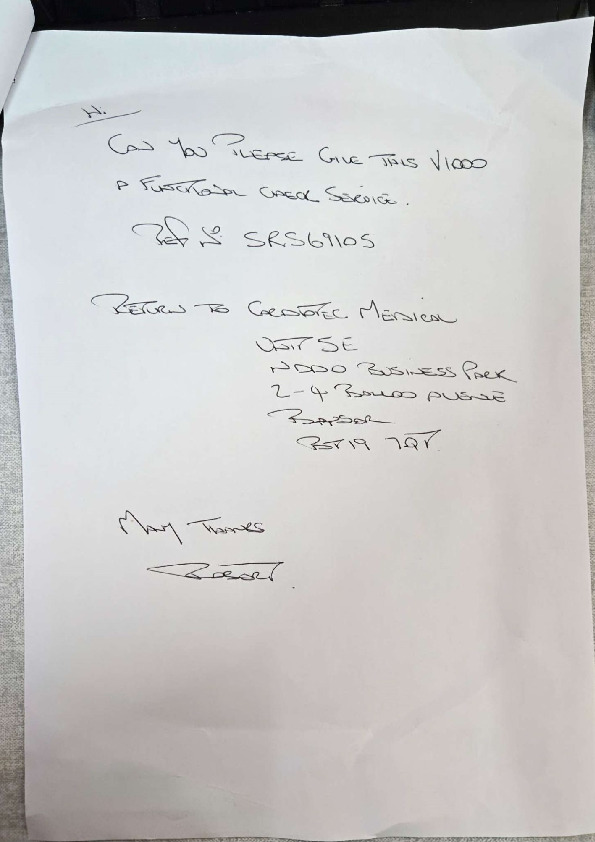 Hi
Can You Please Give This V1000
A Functional Check Service.
Ref No SRS69105
Return To Cardiotec Medical
Unit 5E
NDDO Business Park
2-4 Balloo Avenue
Bangor
BT19 7QT
Many Thanks
Robert.